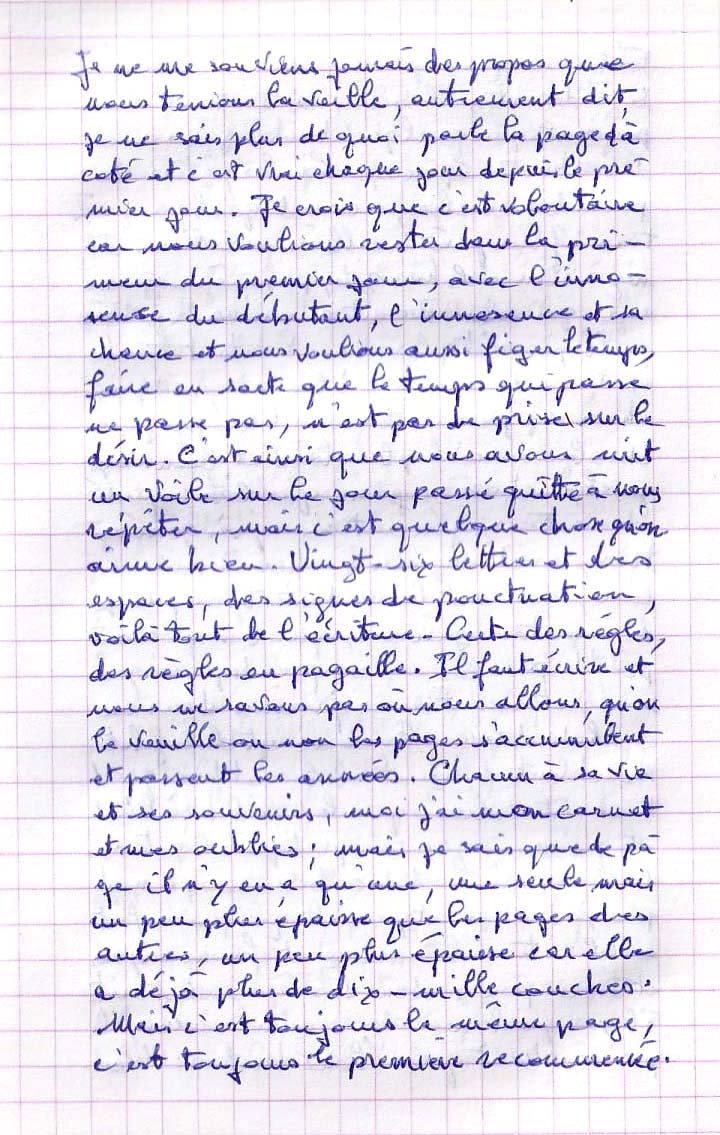 Je ne me souviens jamais des propos que
nous tenions la veille, autrement dit,
je ne sais plus de quoi parle la page d'à
coté et c'est vrai chaque jour depuis le pre-
mier jour. Je crois que c'est volontaire
car nous voulions rester dans la pri-
meur du premier jour, avec l'inno-
sence du débutant, l'innosence et sa
chance et nous voulions aussi figer le temps,
faire en sorte que le temps qui passe
ne passe pas, n'est pas de prise sur le
désir. C'est ainsi que nous avons mit
un voile sur le jour passé quitte à nous
répéter, mais c'est quelque chose qu'on
aime bien. Vingt-six lettres et des
espaces, des signes de ponctuation,
voilà tout de l'écriture. Certe des règles,
des règles en pagaille. Il faut écrire et
nous ne savons pas où nous allons, qu'on
le veuille ou non les pages s'accumulent
et passent les années. Chacun à sa vie
et ses souvenirs, moi j'ai mon carnet
et mes oublies ; mais je sais que de pa
ge il n'y en a qu'une, une seule mais
un peu plus épaisse que les pages des
autres, un peu plus épaisse car elle
a déjà plus de dix-mille couches.
Mais c'est toujours la même page,
c'est toujours la première recommencé.